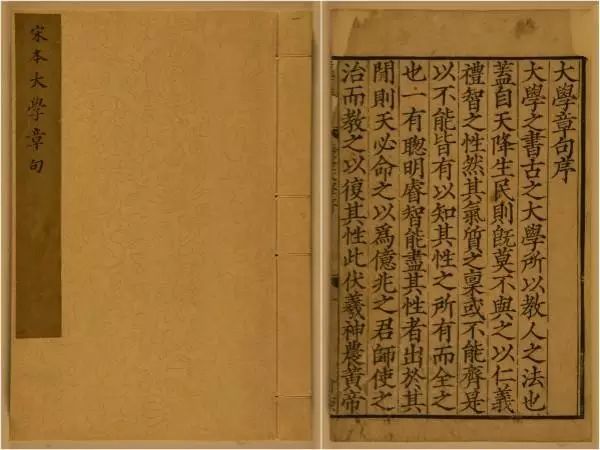 宋本大學章句
大學章句序
大學之書古之大學所以教人之法也
蓋自天降生民則旣莫不與之以仁義
禮智之性然其氣質之稟或不能齊是
以不能皆有以知其性之所有而全之
也一有聰明睿智能盡其性者出於其
閒則天必命之以爲億兆之君師使之
治而教之以復其性此伏羲神農黃帝